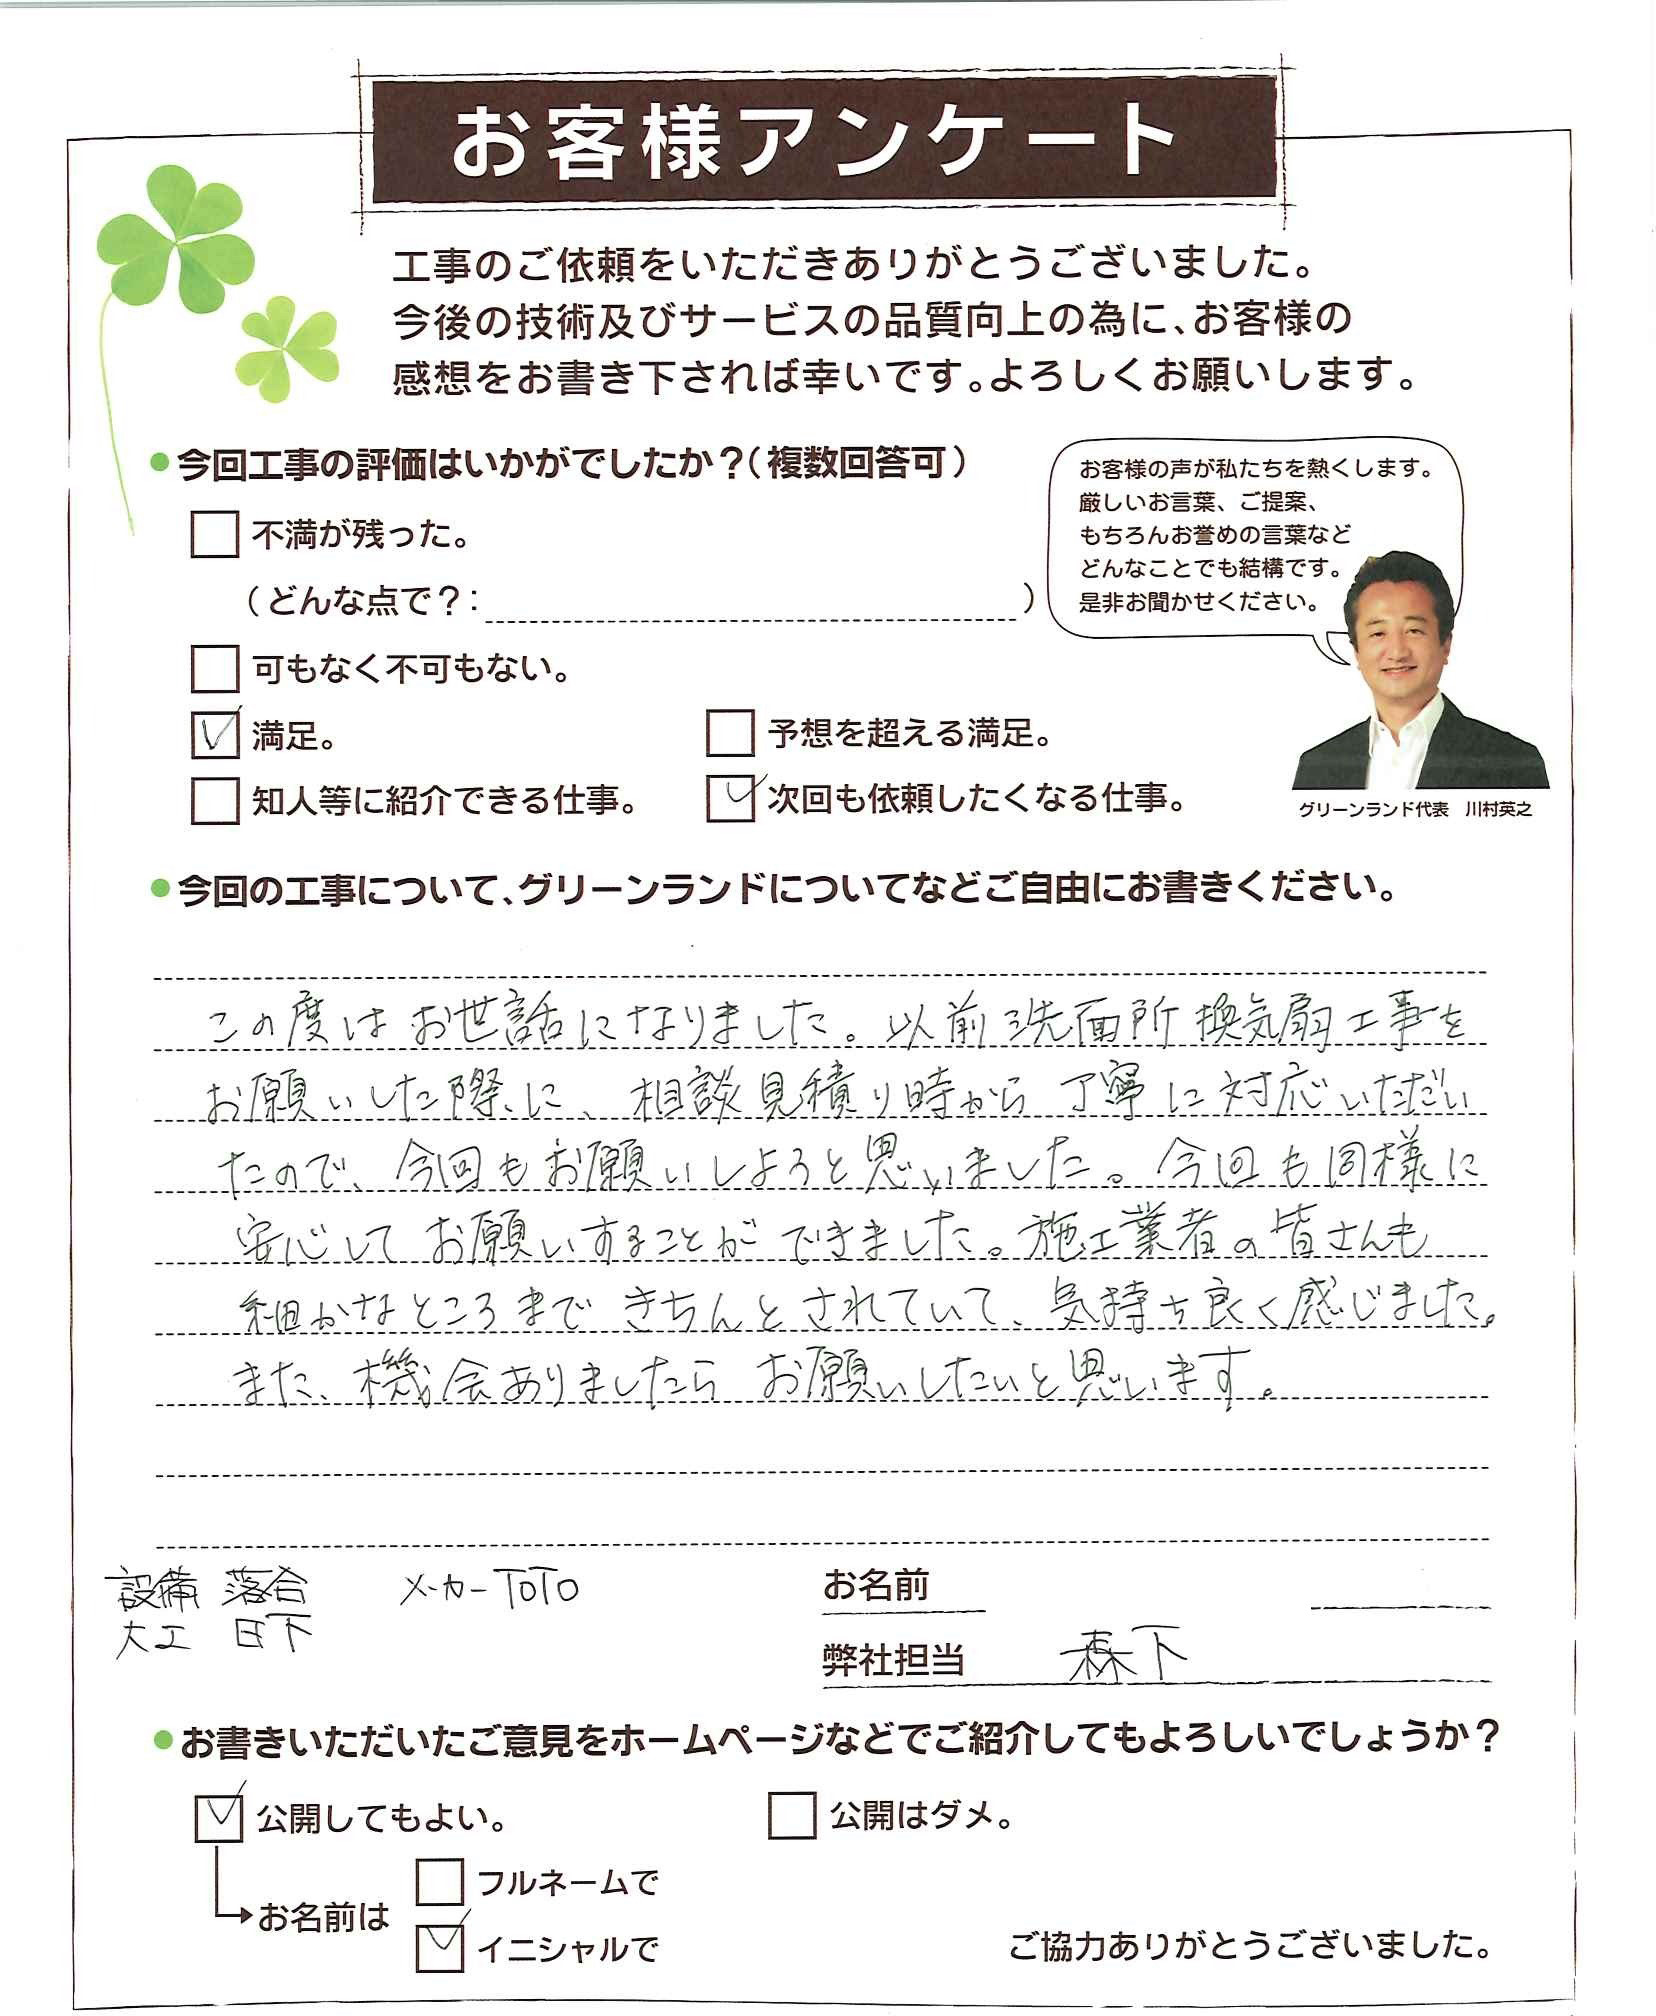 お客様アンケート
工事のご依頼をいただきありがとうございました。
今後の技術及びサービスの品質向上の為に、お客様の
感想をお書き下されば幸いです。よろしくお願いします。
●今回工事の評価はいかがでしたか？（複数回答可）
お客様の声が私たちを熱くします。
厳しいお言葉、ご提案、
もちろんお誉めの言葉など
どんなことでも結構です。
是非お聞かせください。
グリーンランド代表　川村英之
不満が残った。
（どんな点で？：　）
可もなく不可もない。
満足。　予想を超える満足。
知人等に紹介できる仕事。　次回も依頼したくなる仕事。
●今回の工事について、グリーンランドについてなどご自由にお書きください。
この度はお世話になりました。以前洗面所換気扇工事を
お願いした際に、相談見積り時から丁寧に対応いただい
たので、今回もお願いしようと思いました。今回も同様に
安心してお願いすることができました。施工業者の皆さんも
細かなところまできちんとされていて、気持ち良く感じました。
また、機会ありましたらお願いしたいと思います。
設備 落合　メーカー TOTO
大工 日下
お名前
弊社担当　森下
●お書きいただいたご意見をホームページなどでご紹介してもよろしいでしょうか？
公開してもよい。　公開はダメ。
フルネームで
お名前は
イニシャルで
ご協力ありがとうございました。